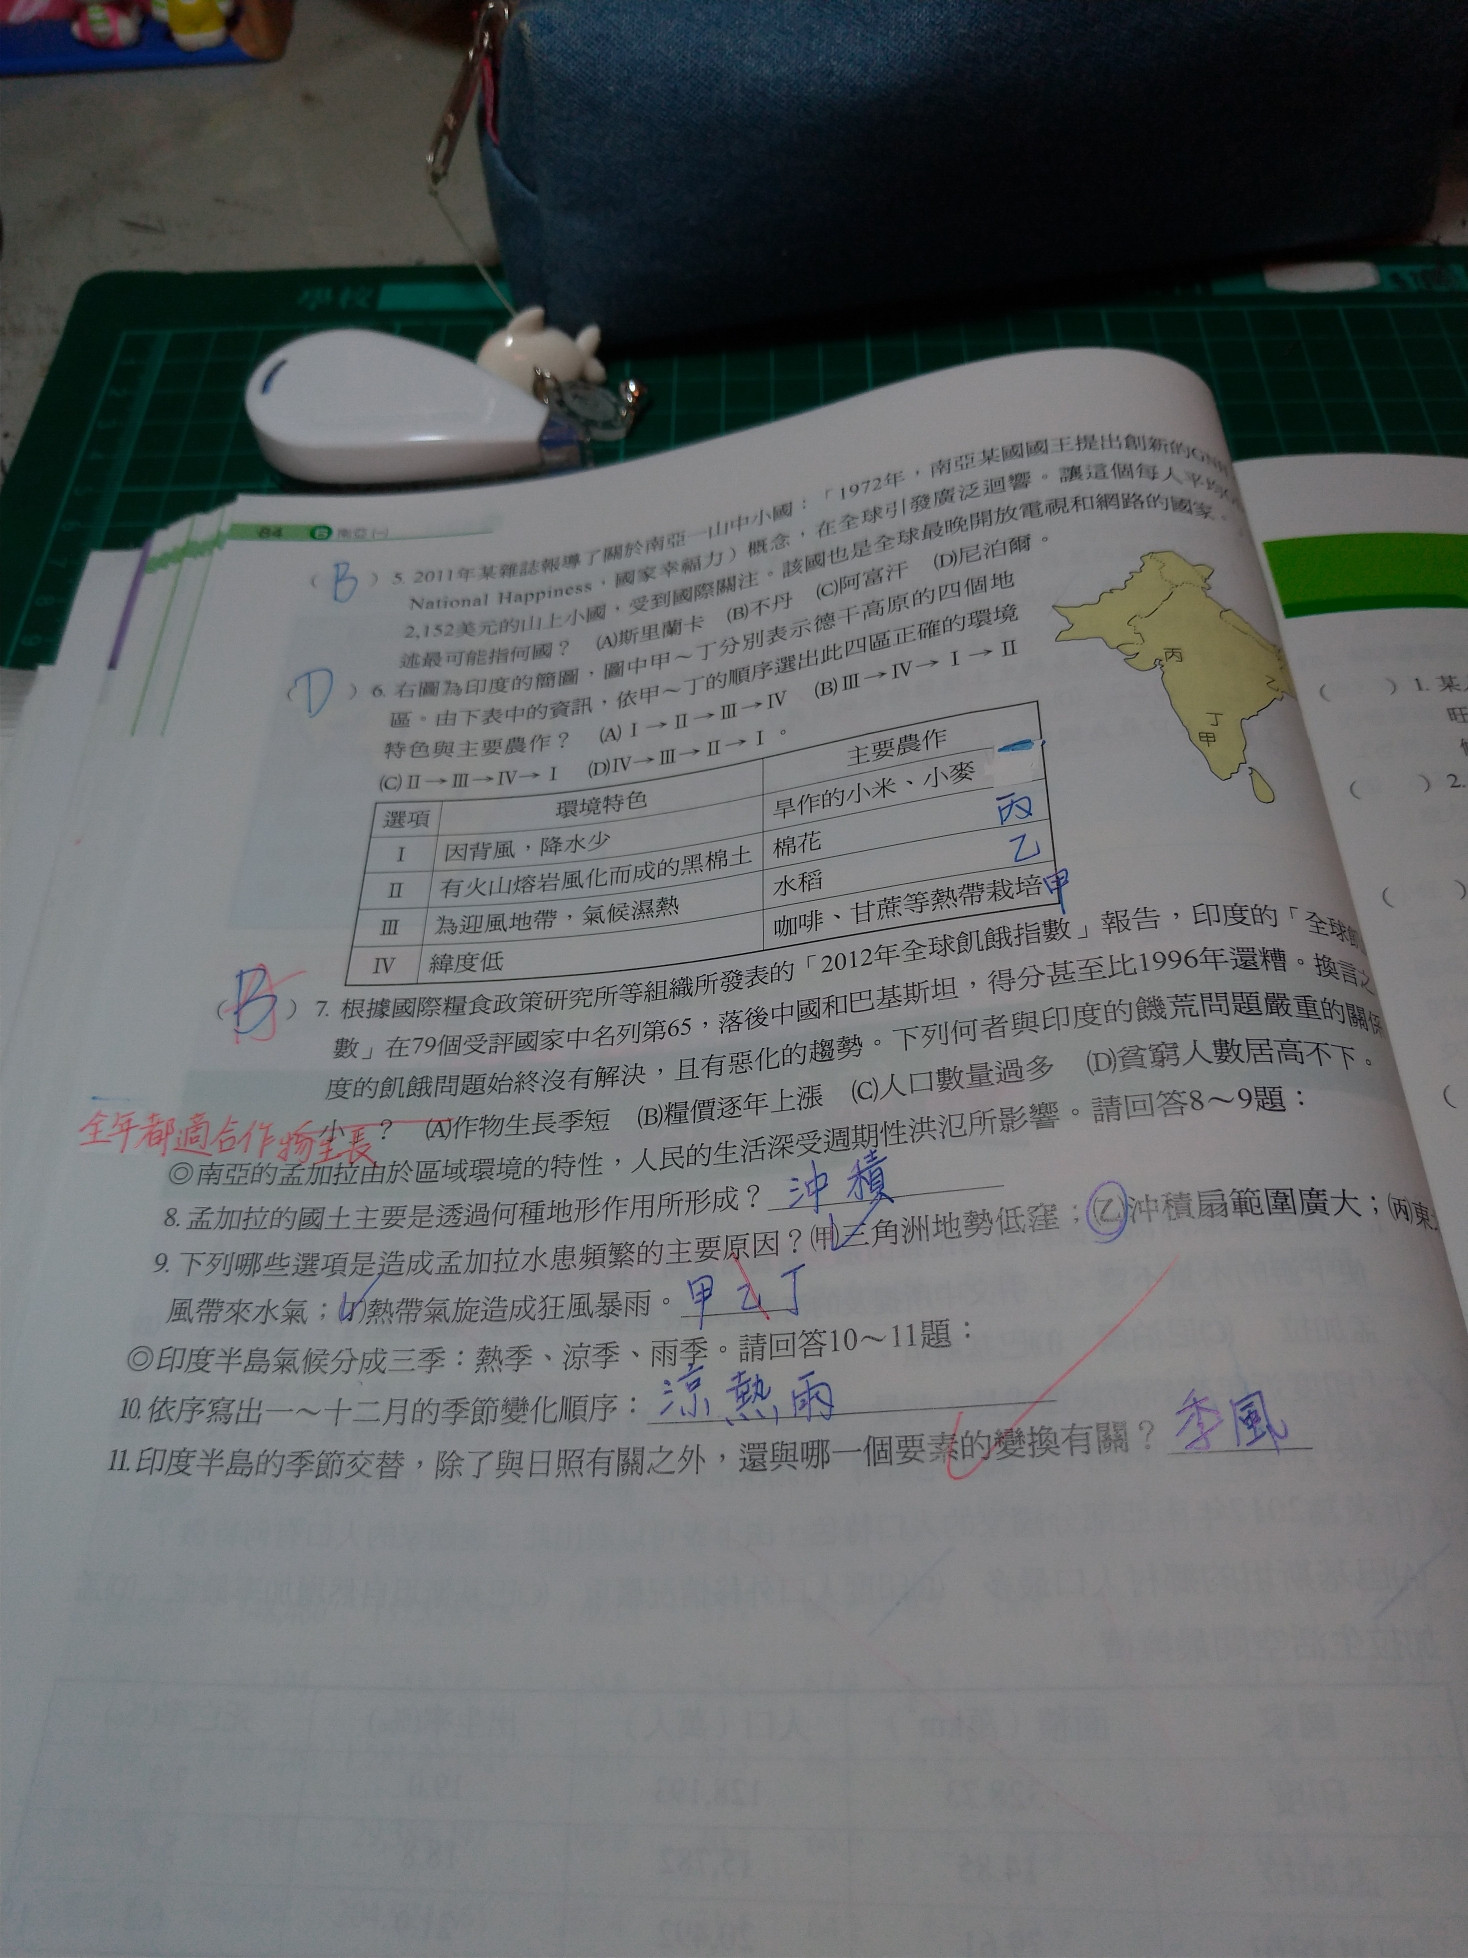 學校
84 6 南亞(一)
( B ) 5. 2011年某雜誌報導了關於南亞一山中小國：「1972年，南亞某國國王提出創新的GNH
National Happiness，國家幸福力）概念，在全球引發廣泛迴響。讓這個每人平均
2,152美元的山上小國，受到國際關注。該國也是全球最晚開放電視和網路的國家。
述最可能指何國？ (A)斯里蘭卡 (B)不丹 (C)阿富汗 (D)尼泊爾。
( D ) 6. 右圖為印度的簡圖，圖中甲～丁分別表示德干高原的四個地
區。由下表中的資訊，依甲～丁的順序選出此四區正確的環境
特色與主要農作？ (A)Ⅰ→Ⅱ→Ⅲ→Ⅳ (B)Ⅲ→Ⅳ→Ⅰ→Ⅱ
(C)Ⅱ→Ⅲ→Ⅳ→Ⅰ (D)Ⅳ→Ⅲ→Ⅱ→Ⅰ。
丙
乙
丁
甲
選項 環境特色 主要農作
Ⅰ 因背風，降水少 旱作的小米、小麥
Ⅱ 有火山熔岩風化而成的黑棉土 棉花 丙
Ⅲ 為迎風地帶，氣候濕熱 水稻 乙
Ⅳ 緯度低 咖啡、甘蔗等熱帶栽培 甲
( B ) 7. 根據國際糧食政策研究所等組織所發表的「2012年全球飢餓指數」報告，印度的「全球
數」在79個受評國家中名列第65，落後中國和巴基斯坦，得分甚至比1996年還糟。換言之
度的飢餓問題始終沒有解決，且有惡化的趨勢。下列何者與印度的饑荒問題嚴重的關係
小？ (A)作物生長季短 (B)糧價逐年上漲 (C)人口數量過多 (D)貧窮人數居高不下。
全年都適合作物生長
◎南亞的孟加拉由於區域環境的特性，人民的生活深受週期性洪氾所影響。請回答8～9題：
8. 孟加拉的國土主要是透過何種地形作用所形成？ 沖積
9. 下列哪些選項是造成孟加拉水患頻繁的主要原因？(甲)三角洲地勢低窪；(乙)沖積扇範圍廣大；(丙)東
風帶來水氣；(丁)熱帶氣旋造成狂風暴雨。 甲乙丁
◎印度半島氣候分成三季：熱季、涼季、雨季。請回答10～11題：
10. 依序寫出一～十二月的季節變化順序： 涼熱雨
11. 印度半島的季節交替，除了與日照有關之外，還與哪一個要素的變換有關？ 季風
( ) 1. 某
( ) 2.